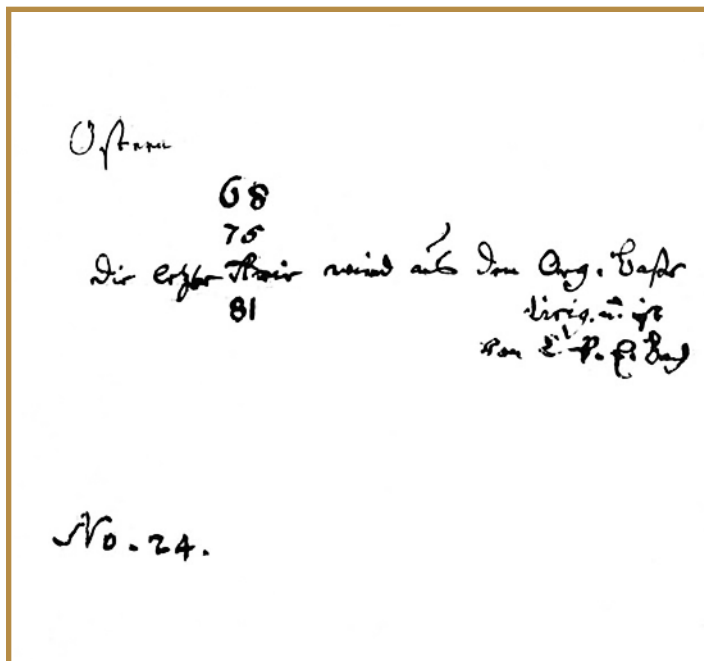 Ostern
68
75
Die letzte Arie wird aus dem Org. Basse
81 dirig. u. ist
von C. P. E. Bach
No. 24.